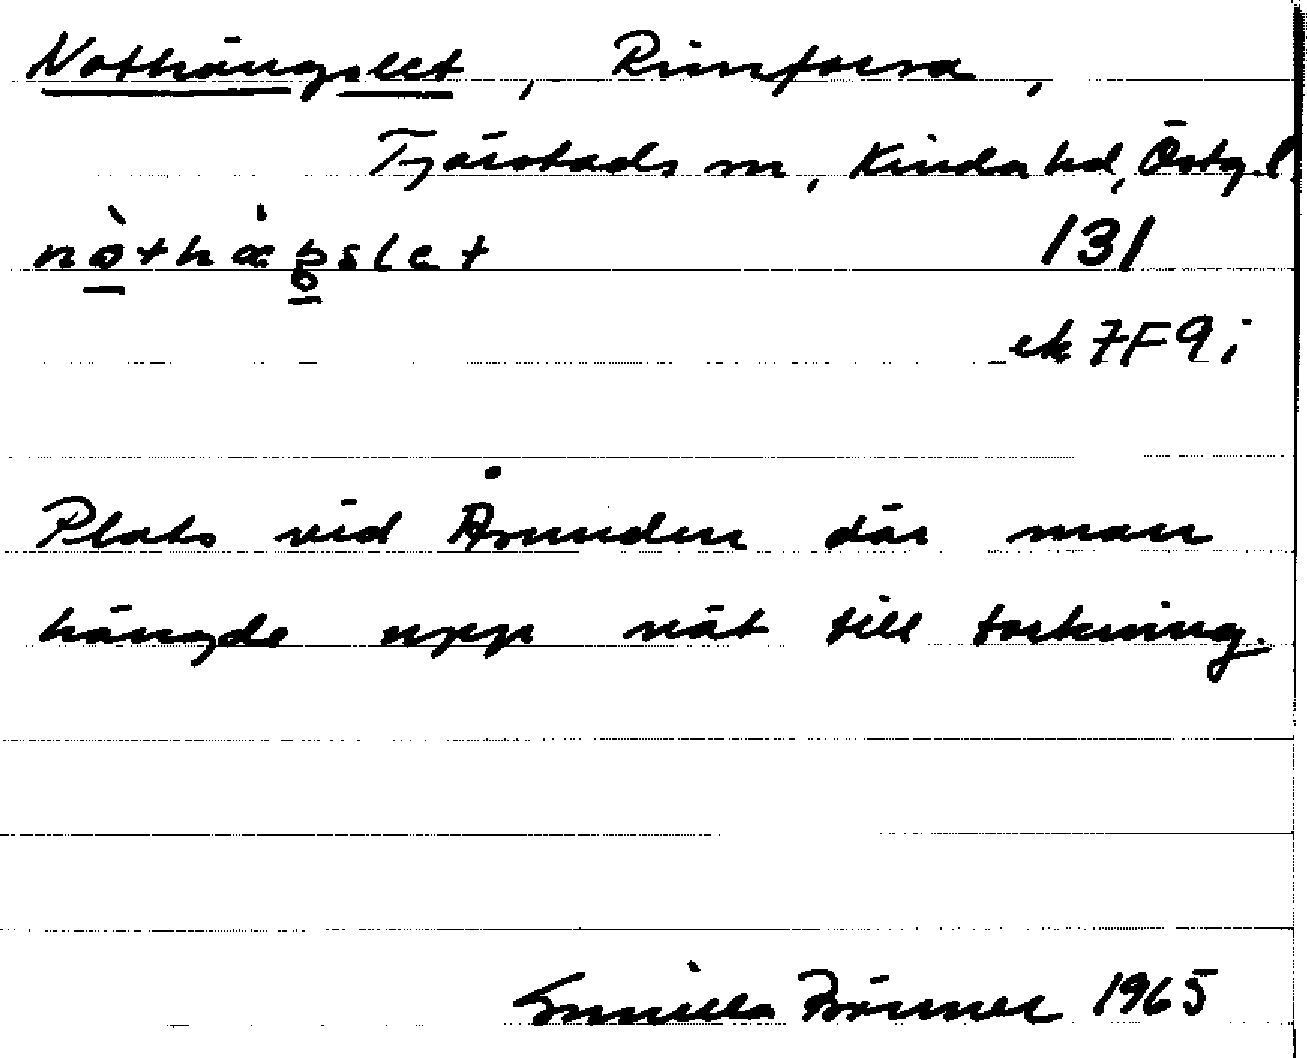 Nothängslet, Rimforsa,
Tjärstads sn, Kinda hd, Östg.l.
nòthæ̀ŋslet 131
ek 7F9i
Plats vid Åsunden där man
hängde upp nät till torkning.
Gunilla 1965